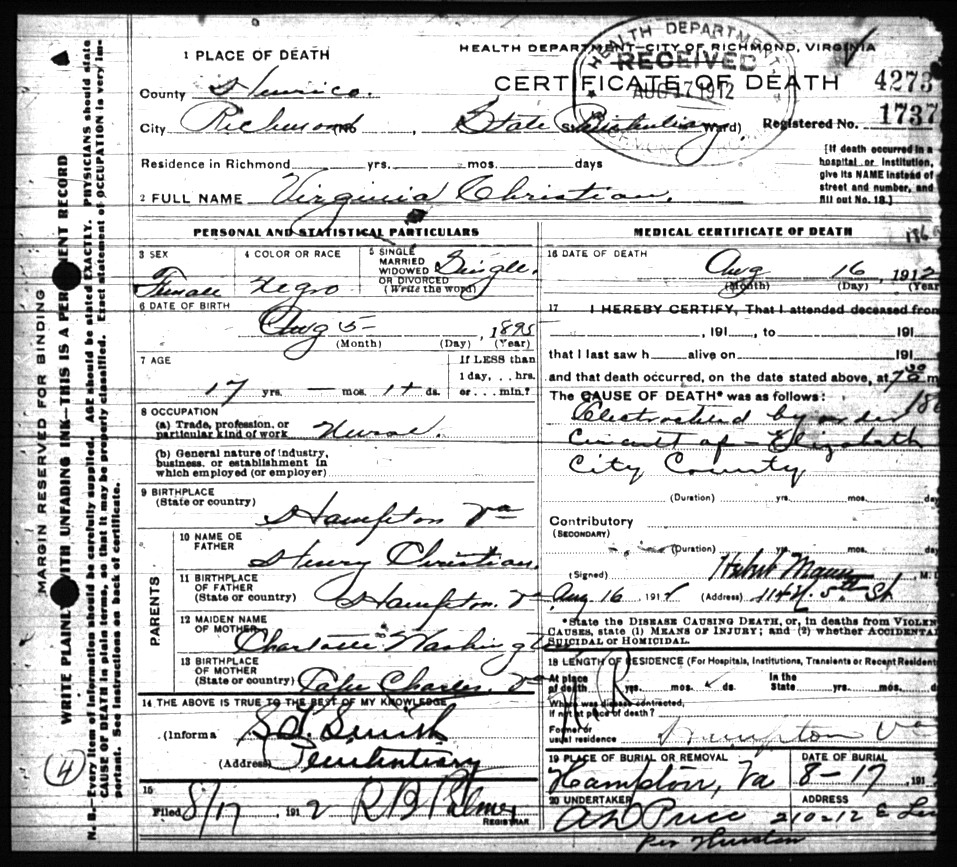 HEALTH DEPARTMENT—CITY OF RICHMOND, VIRGINIA
CERTIFICATE OF DEATH
HEALTH DEPARTMENT
RECEIVED
AUG 17 1912
4273
Registered No. 1737
1 PLACE OF DEATH
County Henrico.
City Richmond No. , State Penitentiary St. Ward)
[If death occurred in a
hospital or institution,
give its NAME instead of
street and number, and
fill out No. 18.]
Residence in Richmond yrs. mos. days
2 FULL NAME Virginia Christian.
PERSONAL AND STATISTICAL PARTICULARS
3 SEX
Female
4 COLOR OR RACE
Negro
5 SINGLE
MARRIED
WIDOWED
OR DIVORCED
(Write the word)
Single.
6 DATE OF BIRTH
Aug 5 1895
(Month) (Day) (Year)
7 AGE
17 yrs. — mos. 1+ ds.
If LESS than
1 day, . . hrs.
or . . . min.?
8 OCCUPATION
(a) Trade, profession, or
particular kind of work Nurse.
(b) General nature of industry,
business, or establishment in
which employed (or employer)
9 BIRTHPLACE
(State or country)
Hampton Va
PARENTS
10 NAME OF
FATHER
Henry Christian.
11 BIRTHPLACE
OF FATHER
(State or country)
Hampton. Va
12 MAIDEN NAME
OF MOTHER
Charlotte Washington
13 BIRTHPLACE
OF MOTHER
(State or country)
Charles. Va
14 THE ABOVE IS TRUE TO THE BEST OF MY KNOWLEDGE
(Informa
(Address) Penitentiary
15
Filed 8/17 1912 R B Palmer
REGISTRAR
MEDICAL CERTIFICATE OF DEATH
16 DATE OF DEATH
Aug 16, 1912
(Month) (Day) (Year
17 I HEREBY CERTIFY, That I attended deceased from
, 191 , to 191
that I last saw h alive on 191
and that death occurred, on the date stated above, at 7 m
The CAUSE OF DEATH* was as follows:
Electrocuted by order
Circuit of Elizabeth
City County
(Duration) yrs. mos. day
Contributory
(SECONDARY)
(Duration) yrs. mos. day
(Signed) Mann M. D.
Aug 16 1912 (Address) 114 N. 5th St
*State the DISEASE CAUSING DEATH, or, in deaths from VIOLEN
CAUSES, state (1) MEANS OF INJURY; and (2) whether ACCIDENTA
SUICIDAL or HOMICIDAL.
18 LENGTH OF RESIDENCE (For Hospitals, Institutions, Transients or Recent Resident
At place
of death yrs. mos. ds.
In the
State yrs. mos. ds.
Where was disease contracted,
If not at place of death?
Former or
usual residence Hampton Va
19 PLACE OF BURIAL OR REMOVAL
Hampton, Va
DATE OF BURIAL
8-17, 191
20 UNDERTAKER
A D Price
ADDRESS
210-12 E
per
MARGIN RESERVED FOR BINDING
WRITE PLAINLY WITH UNFADING INK—THIS IS A PERMANENT RECORD
N. B.—Every item of information should be carefully supplied. AGE should be stated EXACTLY. PHYSICIANS should state
CAUSE OF DEATH in plain terms, so that it may be properly classified. Exact statement of OCCUPATION is very im-
portant. See instructions on back of certificate.
4